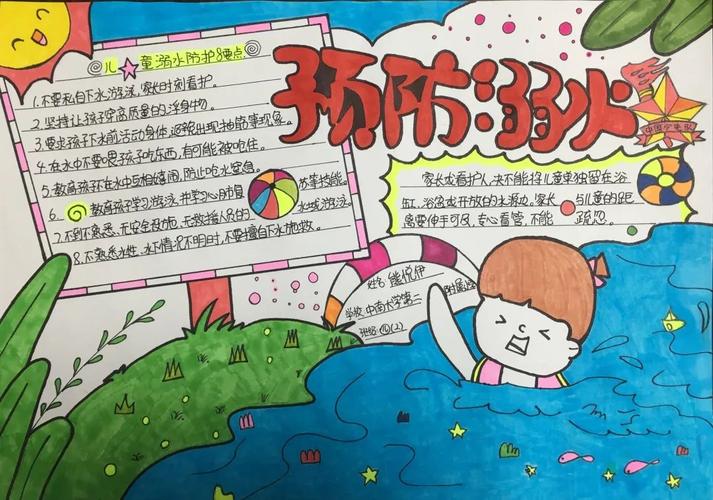 预防溺水
儿童溺水防护8要点
1.不要私自下水游泳,家长时刻看护。
2.坚持让孩子穿高质量的浮身物。
3.要求孩子下水前活动身体,避免出现抽筋等现象。
4.在水中不要喂孩子吃东西,有可能被呛住。
5.教育孩子在水中互相嬉闹,防止呛水窒息。
6.教育孩子学习游泳,并学习心肺复苏等技能。
7.不到不熟悉、无安全设施、无救援人员的水域游泳。
8.不熟悉水性,水下情况不明时,不要擅自下水施救。
中国少先队
家长或看护人,决不能将儿童单独留在浴
缸、浴盆或开放的水源边,家长与儿童的距
离要伸手可及,专心看管,不能疏忽。
姓名:熊悦伊
学校:中南大学第二附属小学
班级:四(2)